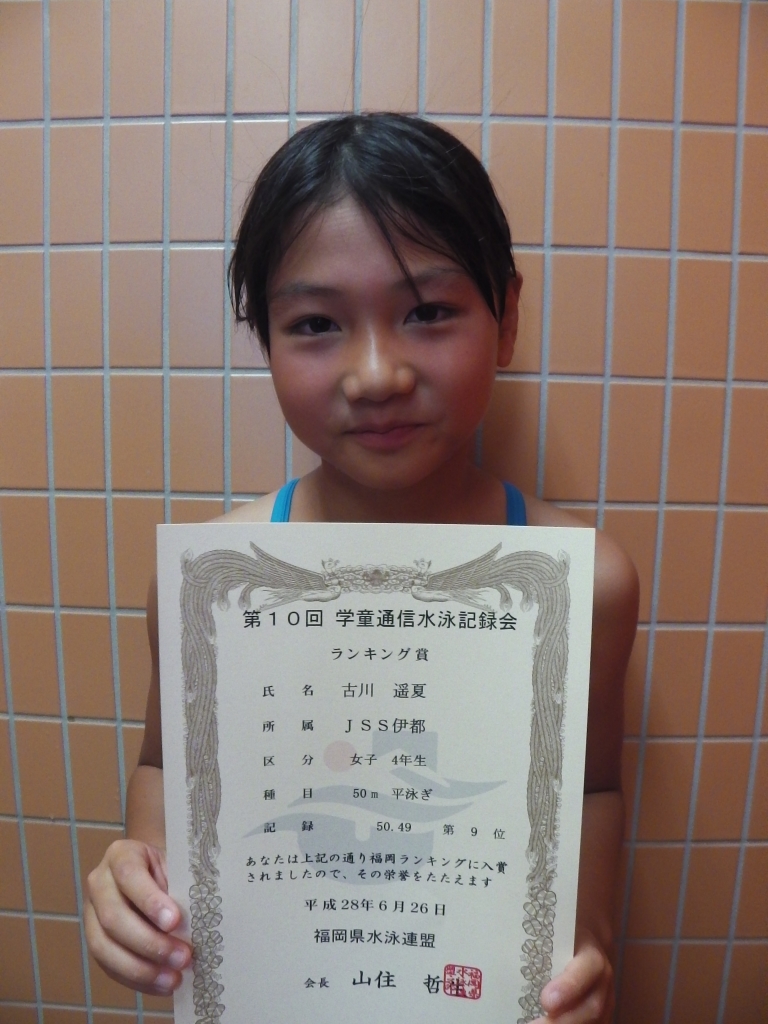 第10回 学童通信水泳記録会
ランキング賞
氏 名 古川 遥夏
所 属 JSS伊都
区 分 女子 4年生
種 目 50m 平泳ぎ
記 録 50.49 第 9 位
あなたは上記の通り福岡ランキングに入賞
されましたので、その栄誉をたたえます
平成28年6月26日
福岡県水泳連盟
会長 山住 哲生